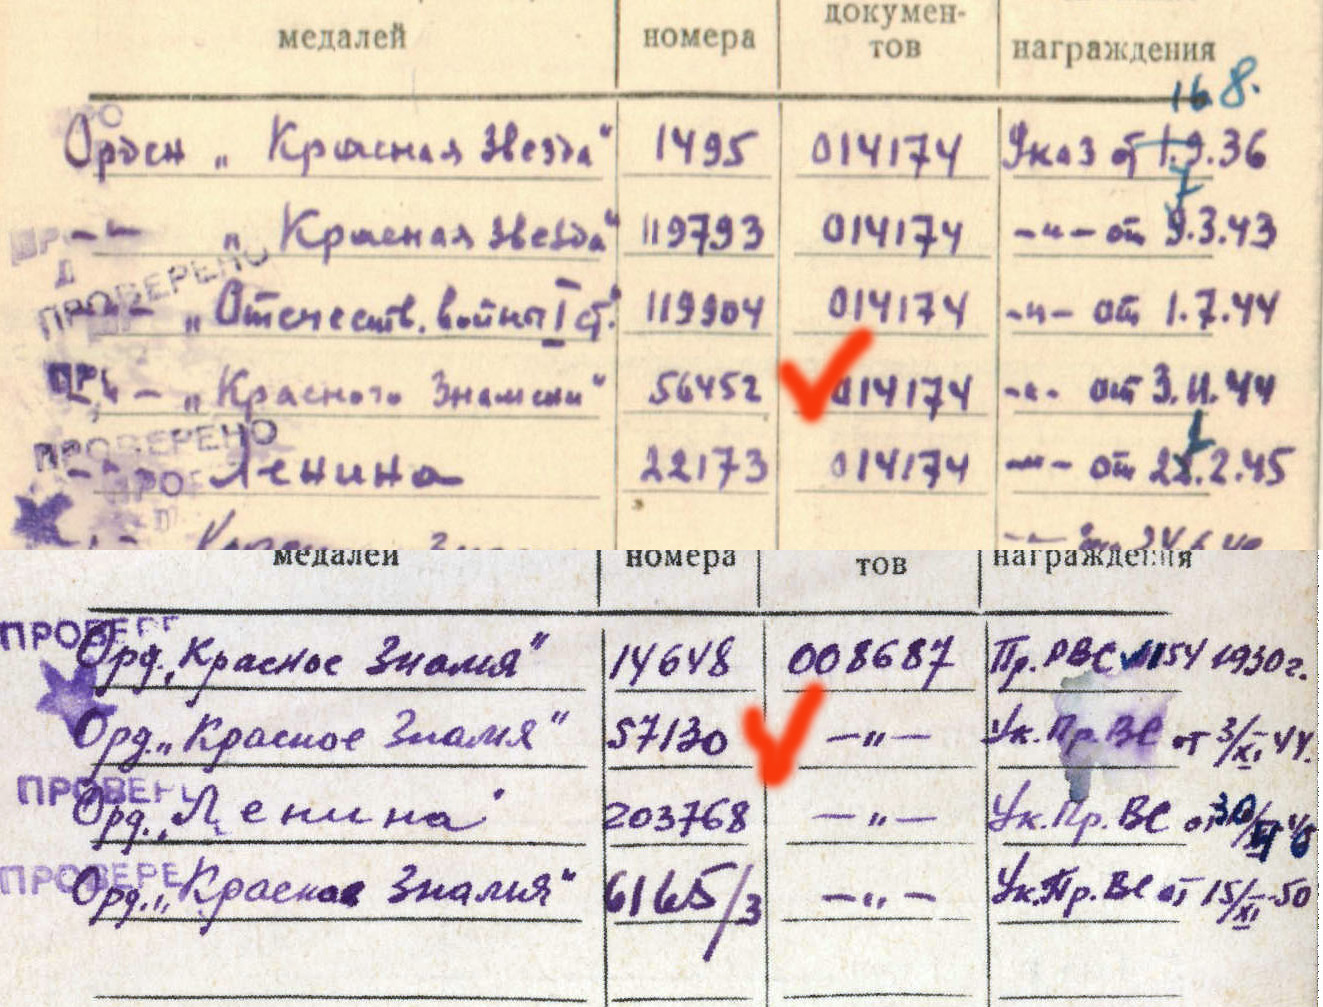 докумен-
медалей номера тов награждения
16.8.
Орден „Красная Звезда“ 1495 014174 Указ от 1.9.36
7
-"- „Красная Звезда“ 119793 014174 -"- от 9.3.43
ПРОВЕРЕНО
-"- „Отечеств. войны I ст.“ 119904 014174 -"- от 1.7.44
-"- „Красного Знамени“ 56452 014174 -"- от 3.11.44
ПРОВЕРЕНО
-"- Ленина 22173 014174 -"- от 2 .2.45
медалей номера тов награждения
Орд. „Красное Знамя“ 14648 008687 Пр. РВС №154 1930г.
Орд. „Красное Знамя“ 57130 -"- Ук. Пр. ВС от 3/XI 44.
Орд. „Ленина“ 203768 -"- Ук. Пр. ВС от 30/
Орд. „Красное Знамя“ 6165/3 -"- Ук. Пр. ВС от 15/XI-50